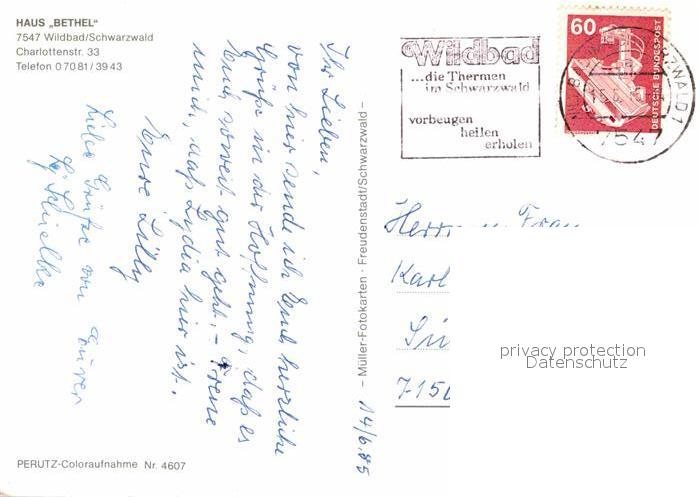 HAUS „BETHEL"
7547 Wildbad/Schwarzwald
Charlottenstr. 33
Telefon 0 70 81 / 39 43
Ihr Lieben,
von hier sende ich Euch herzliche
Grüße in der Hoffnung, daß es
Euch soweit gut geht. – Freue
mich, daß Lydia hier ist.
Eure Lilly
Liebe Grüße von Eurer
14/6.85
PERUTZ-Coloraufnahme Nr. 4607
– Müller-Fotokarten · Freudenstadt/Schwarzwald –
Wildbad
...die Thermen
im Schwarzwald
vorbeugen
heilen
erholen
60
DEUTSCHE BUNDESPOST
7547
Herrn u. Frau
Karl
privacy protection
Datenschutz